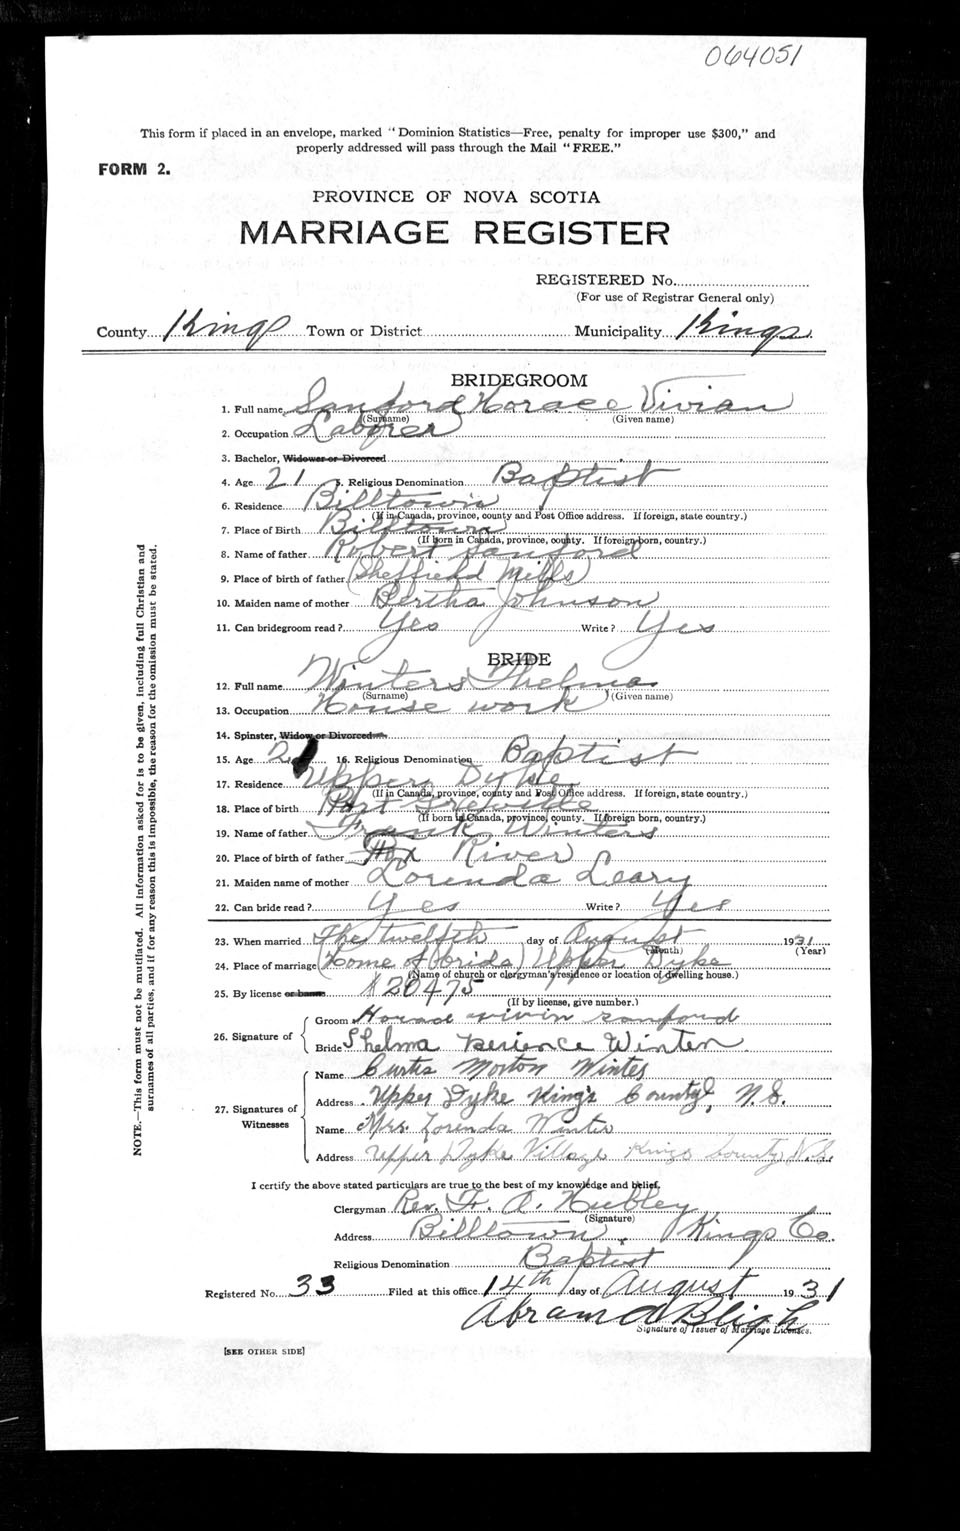 064051
This form if placed in an envelope, marked "Dominion Statistics—Free, penalty for improper use $300," and
properly addressed will pass through the Mail "FREE."
FORM 2.
PROVINCE OF NOVA SCOTIA
MARRIAGE REGISTER
REGISTERED No.
(For use of Registrar General only)
County Kings Town or District Municipality Kings
BRIDEGROOM
1. Full name Sanford Horace Vivian
(Surname) (Given name)
2. Occupation Laborer
3. Bachelor, Widower or Divorced
4. Age 21 5. Religious Denomination Baptist
6. Residence Billtown
(If in Canada, province, county and Post Office address. If foreign, state country.)
7. Place of Birth Billtown
(If born in Canada, province, county. If foreign born, country.)
8. Name of father Robert Sanford
9. Place of birth of father (Sheffield Mills)
10. Maiden name of mother Bertha Johnson
11. Can bridegroom read? Yes Write? Yes
BRIDE
12. Full name Winters Thelma
(Surname) (Given name)
13. Occupation House work
14. Spinster, Widow or Divorced
15. Age 2 16. Religious Denomination Baptist
17. Residence Upper Dyke
(If in Canada, province, county and Post Office address. If foreign, state country.)
18. Place of birth Port Greville
(If born in Canada, province, county. If foreign born, country.)
19. Name of father Frank Winters
20. Place of birth of father River
21. Maiden name of mother Lorenda Leary
22. Can bride read? Yes Write? Yes
23. When married The twelfth day of August 1931
(Month) (Year)
24. Place of marriage (Home of bride) Upper Dyke
(Name of church or clergyman's residence or location of dwelling house.)
25. By license or banns # 20475
(If by license, give number.)
26. Signature of
Groom Horace vivin sanford
Bride Thelma Winters
27. Signatures of Witnesses
Name Curtis Morton Winters
Address Upper Dyke King's County, N.S.
Name Mrs. Lorenda Winters
Address Upper Dyke Village Kings County N.S.
I certify the above stated particulars are true to the best of my knowledge and belief.
Clergyman Rev. F. A. Hubley
(Signature)
Address Billtown, Kings Co.
Religious Denomination Baptist
Registered No. 33 Filed at this office 14th day of August 1931
Abram A Bligh
Signature of Issuer of Marriage Licenses.
[SEE OTHER SIDE]
NOTE.—This form must not be mutilated. All information asked for is to be given, including full Christian and
surnames of all parties, and if for any reason this is impossible, the reason for the omission must be stated.